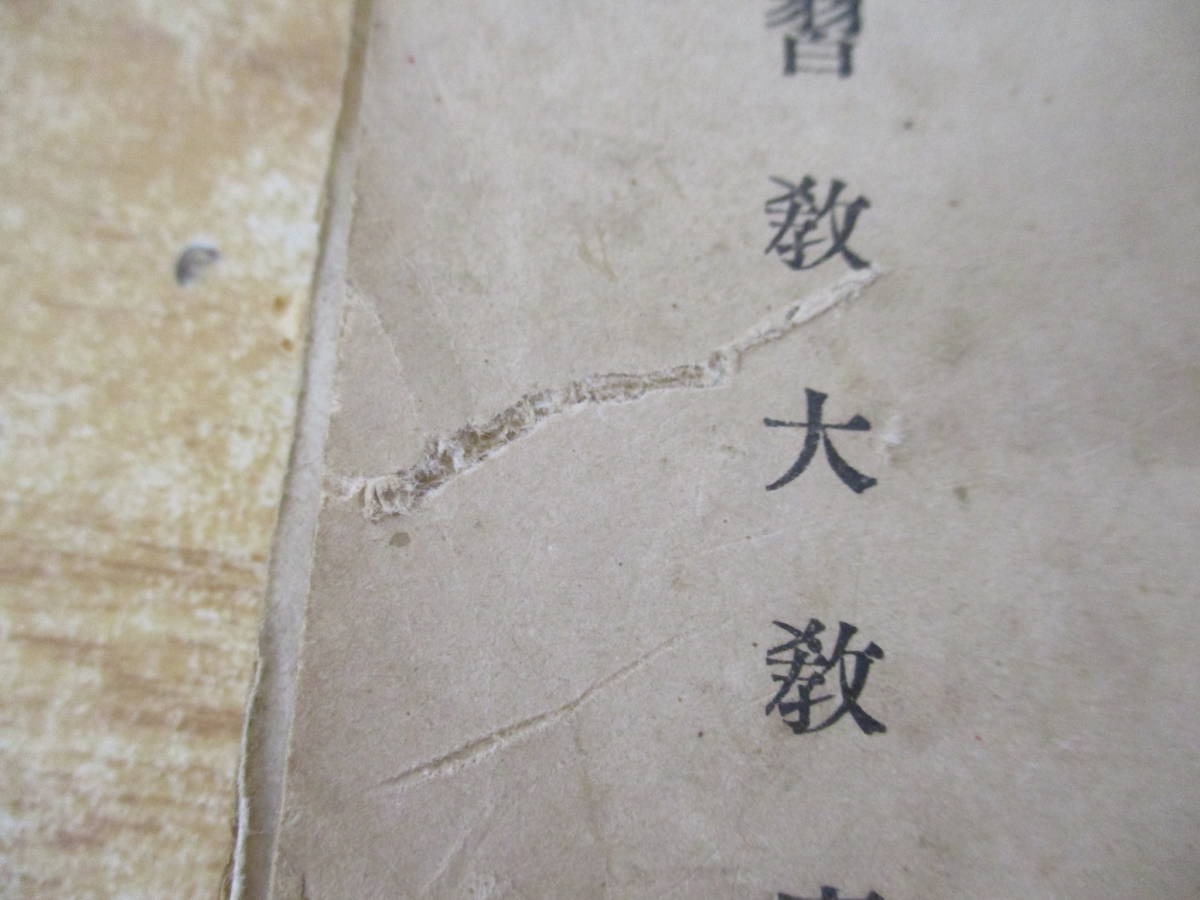 習敎大敎